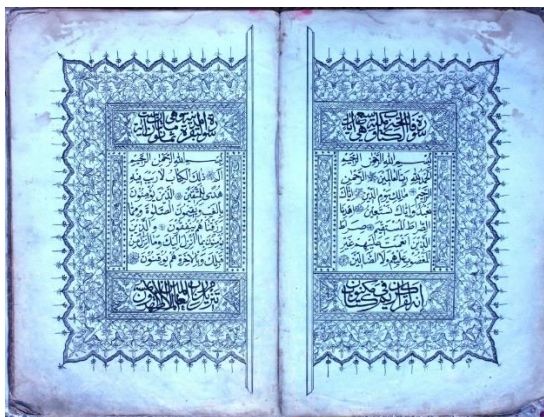 بسم الله الرحمن الرحيم
الحمد لله رب العالمين الرحمن
الرحيم مالك يوم الدين اياك
نعبد واياك نستعين اهدنا
الصراط المستقيم صراط
الذين انعمت عليهم غير
المغضوب عليهم ولا الضالين
انه لقرآن كريم في كتاب مكنون
بسم الله الرحمن الرحيم
الم ذلك الكتاب لا ريب فيه
هدى للمتقين الذين يؤمنون
بالغيب ويقيمون الصلوة ومما
رزقناهم ينفقون والذين
يؤمنون بما انزل اليك وما انزل من
قبلك وبالاخرة هم يوقنون